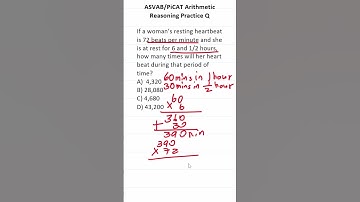 ASVAB/PiCAT Arithmetic
Reasoning Practice Q
If a woman's resting heartbeat
is 72 beats per minute and she
is at rest for 6 and 1/2 hours,
how many times will her heart
beat during that period of
time?
A) 4,320
B) 28,080
C) 4,680
D) 43,200
60mins in 1 hour
30mins in 1/2 hour
60
x 6
360
+ 30
390min
390
x 72